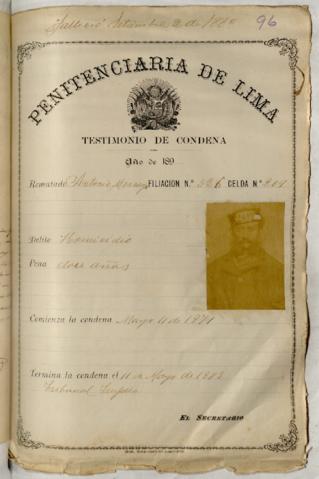 Falleció Setiembre 2 de 18
96
PENITENCIARIA DE LIMA
TESTIMONIO DE CONDENA
Año de 189
Rematado Antonio FILIACION N.º 326 CELDA N.º 201
Delito Homicidio
Pena doce años
Comienza la condena Mayo 11 de 1891
Termina la condena el 11 de Mayo de 1903
Tribunal
EL SECRETARIO